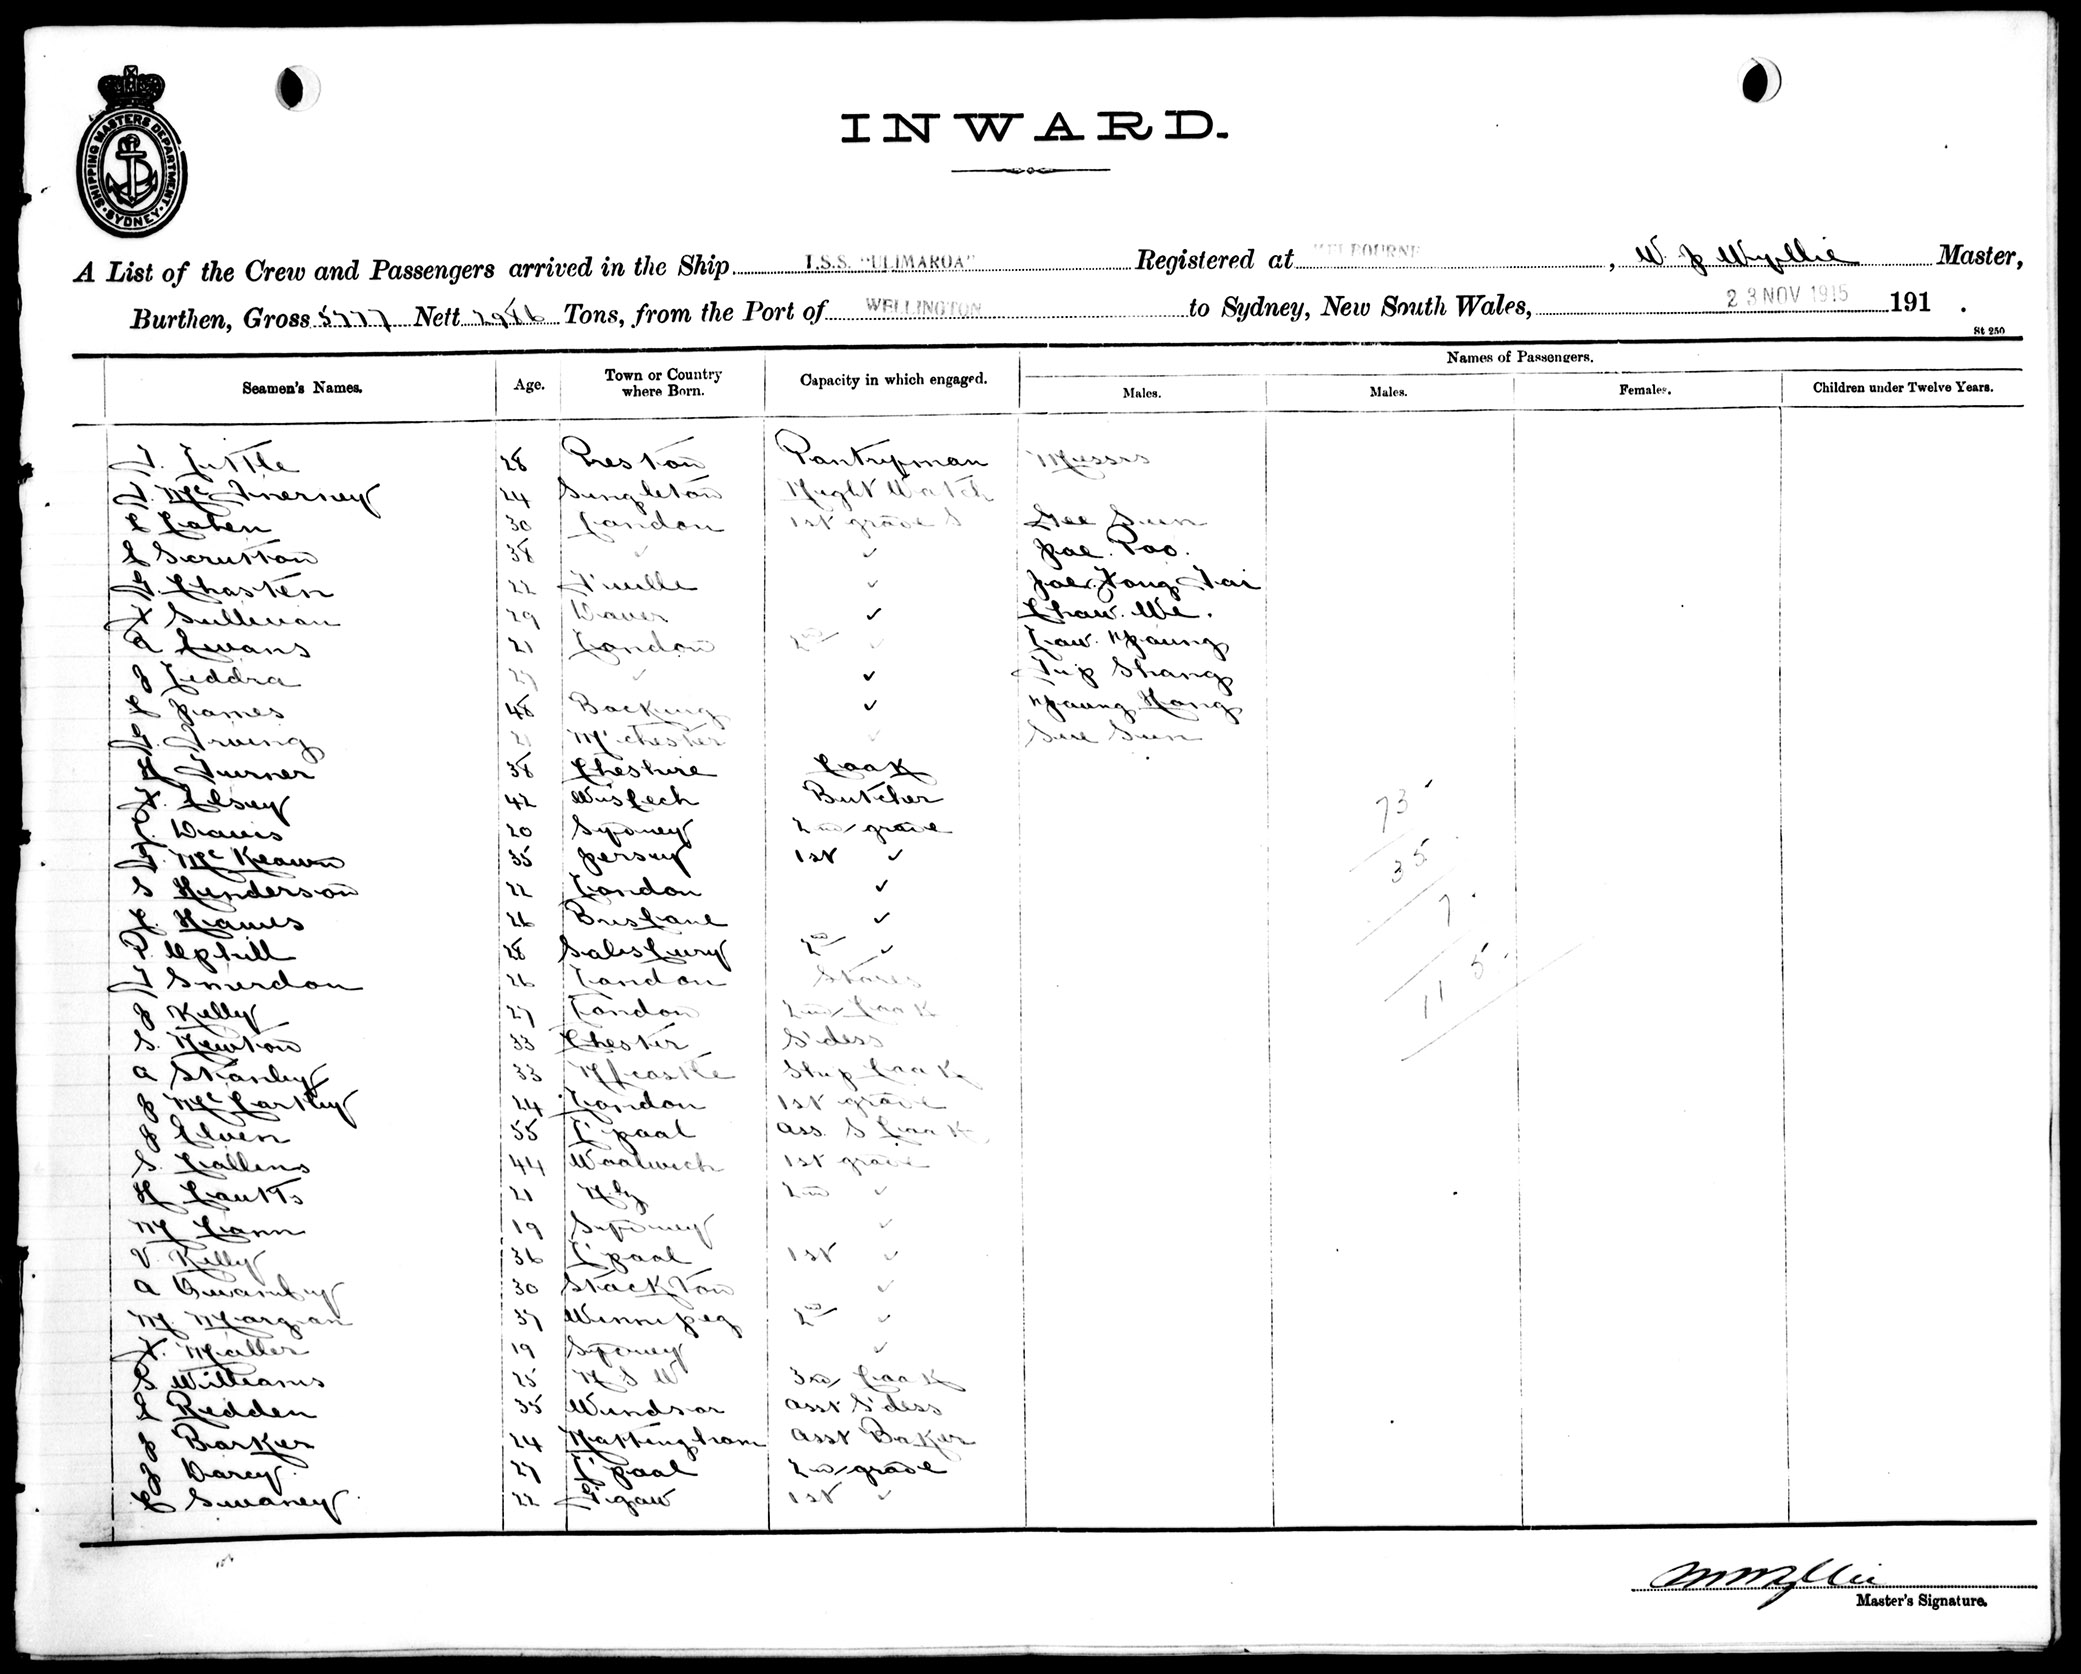 SHIPPING MASTERS DEPARTMENT
SYDNEY
INWARD.
A List of the Crew and Passengers arrived in the Ship T.S.S. "ULIMAROA" Registered at MELBOURNE, W. J Wyllie Master,
Burthen, Gross 5777 Nett 2986 Tons, from the Port of WELLINGTON to Sydney, New South Wales, 23 NOV 1915 191 .
St 250
Names of Passengers.
Seamen's Names. Age. Town or Country where Born. Capacity in which engaged. Males. Males. Females. Children under Twelve Years.
T. Tuttle 28 Preston Pantryman Messrs
T. McInerney 24 Singleton Night Watch
C Cohen 30 London 1st grade S Gee Sun
C Scrutton 38 ✓ ✓ Joe. Poo.
G. Chasten 22 ✓ Joe. Fong Tai
F Sullivan 29 Dover ✓ Chaw. We.
A Evans 21 London 2nd ✓ Law. Young
J Liddra 27 ✓ ✓ Tup Shang
C James 48 Bocking ✓ Young Hong
G. Irving 21 M'chester ✓ Sue Sun
H Turner 38 Cheshire Cook
F. Elsey 42 Wisbech Butcher
Davis 20 Sydney 2nd grade
G. McKeown 35 Jersey 1st ✓
S Henderson 22 London ✓
C. Hawes 26 Brisbane ✓
P. Uphill 28 Salisbury 2nd ✓
T Smerdon 26 London Stores
J Kelly 27 London 2nd Cook
S. Newton 33 Chester S'dess
A Stanley 33 N'castle Ship Cook
J McCarthy 24 London 1st grade
J Elven 55 L'pool Ass. S Cook
S. Collins 44 Woolwich 1st grade
H Coutts 21 2nd ✓
M Conn 19 Sydney ✓
V. Kelly 36 L'pool 1st ✓
A 30 Stockton ✓
M. Morgan 37 Winnipeg 2nd ✓
F. Muller 19 Sydney ✓
S Williams 25 N S W 3rd Cook
E Redden 35 Windsor Asst S'dess
J Barker 24 Nottingham Asst Baker
J Darcy 27 L'pool 2nd grade
C Swaney 22 G'gow 1st ✓
73
35
7
115
Master's Signature.